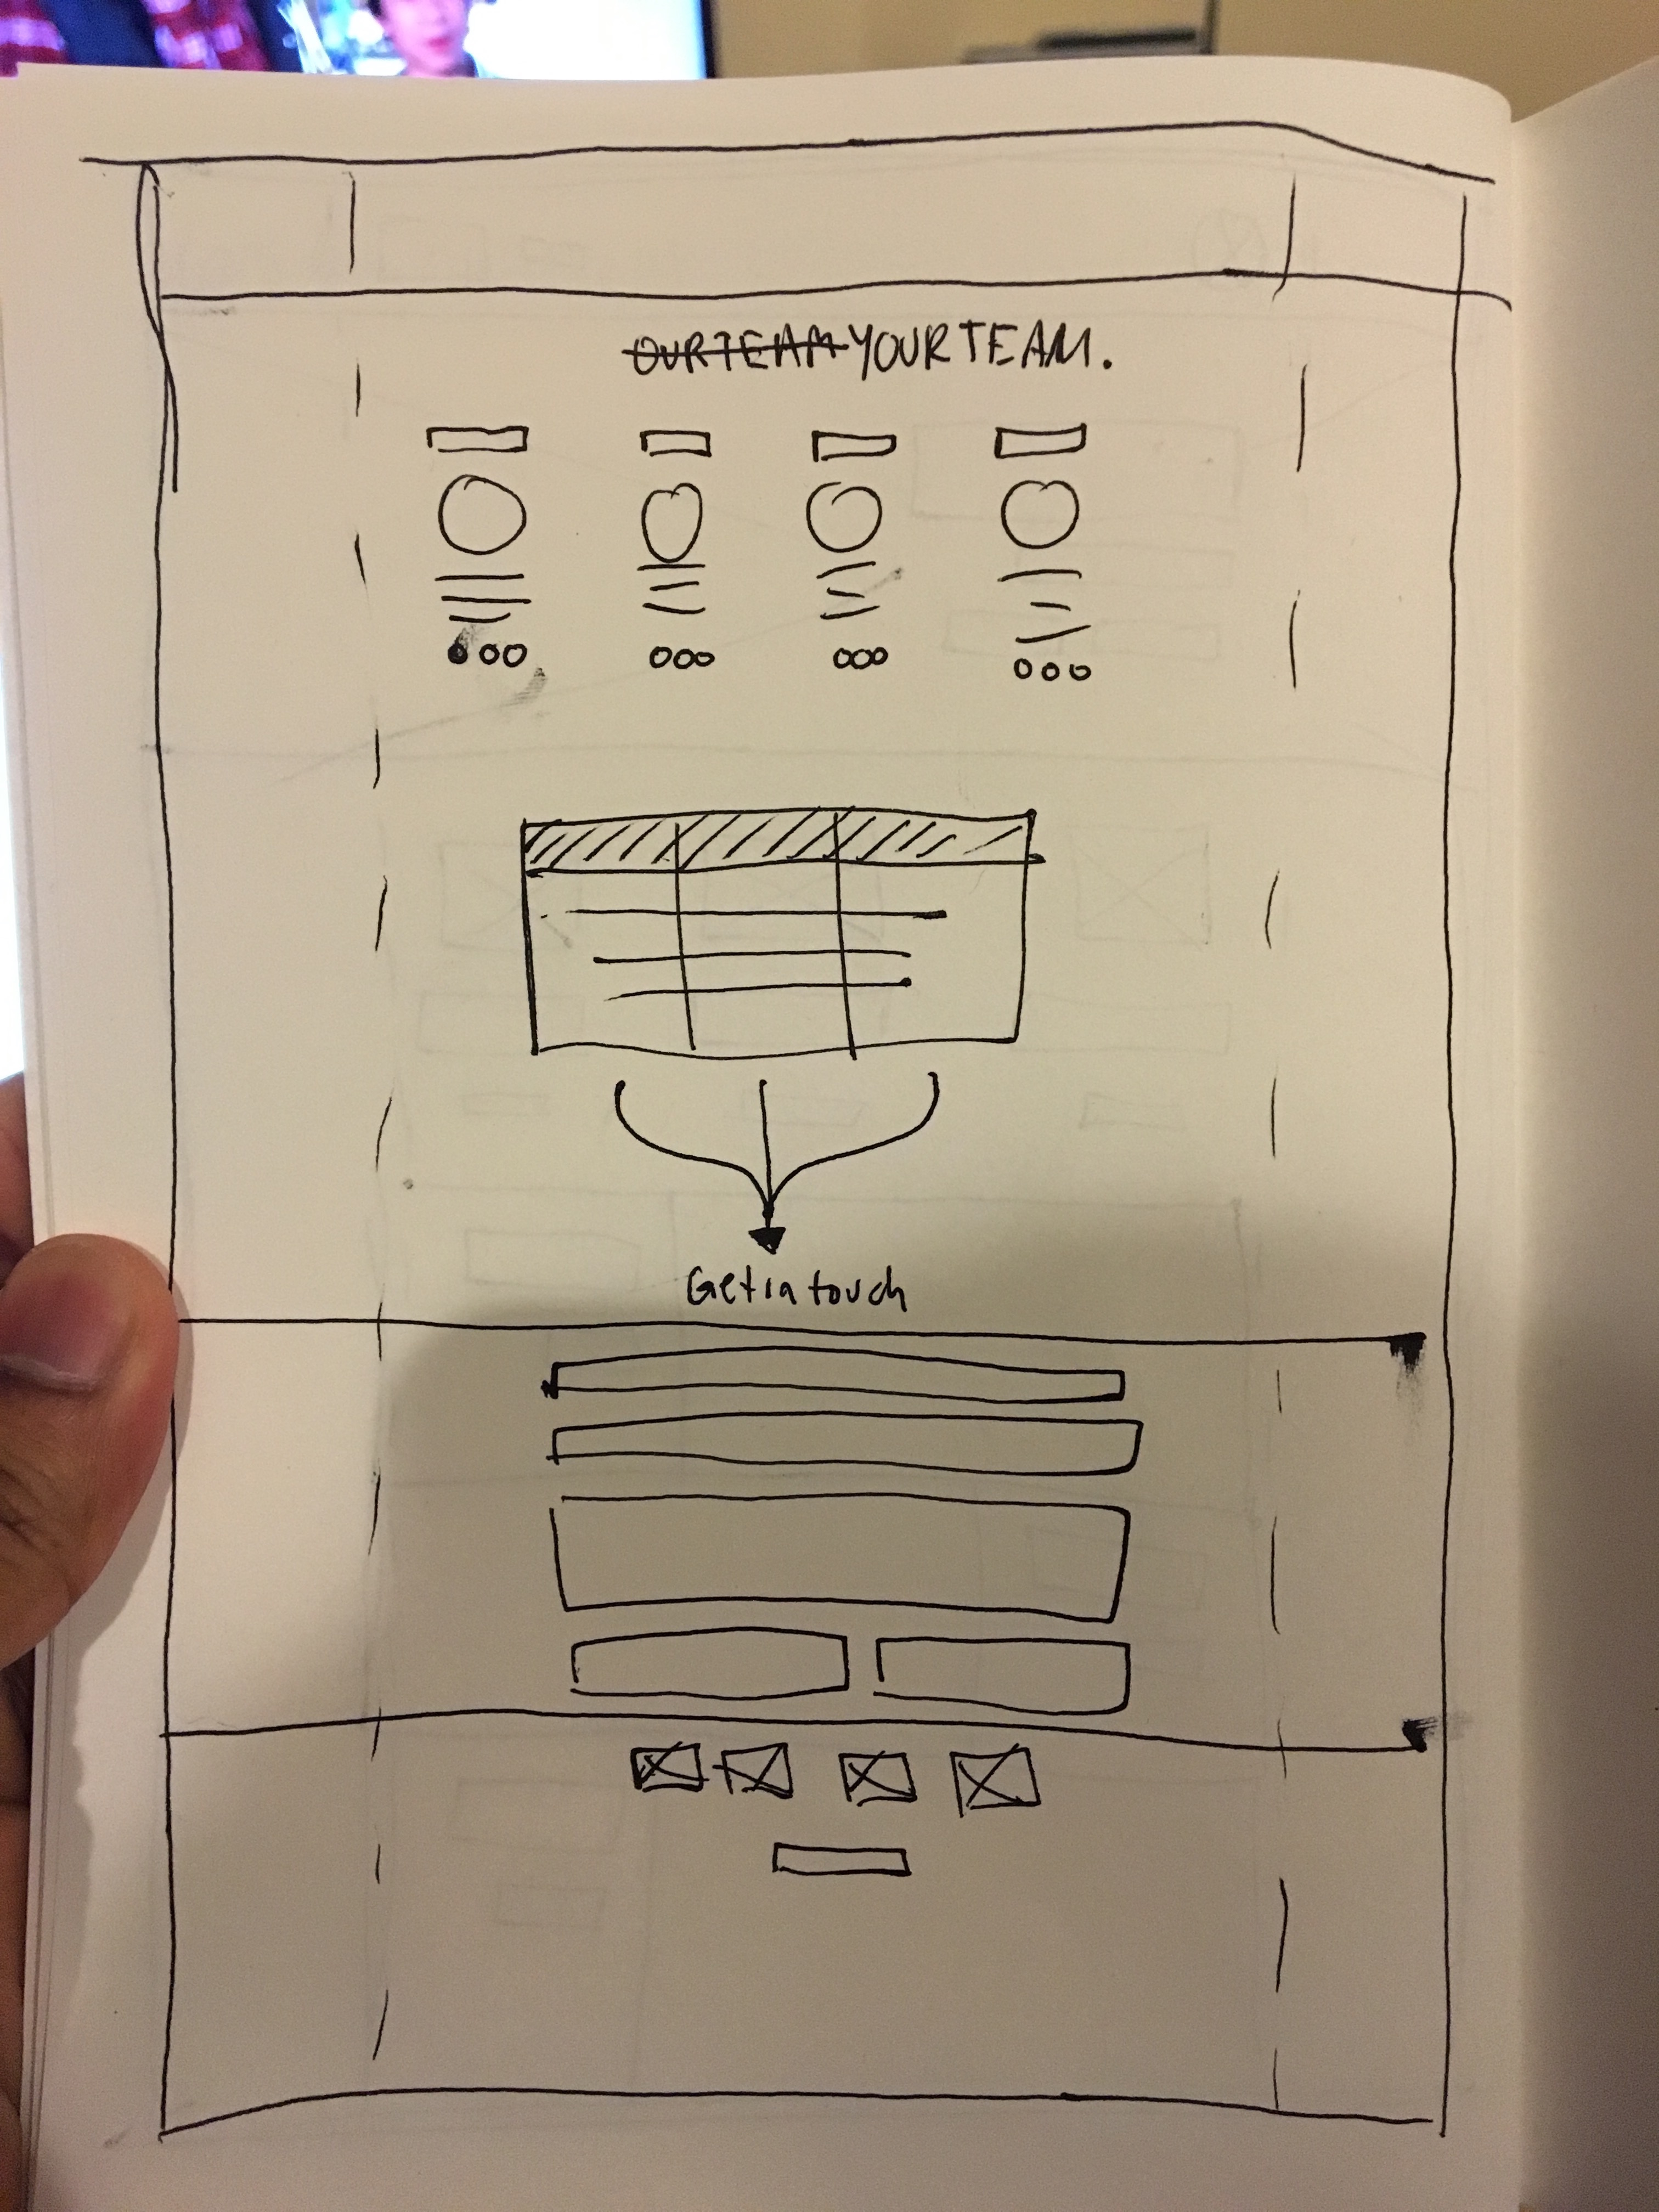 OUR TEAM YOUR TEAM.
Get in touch